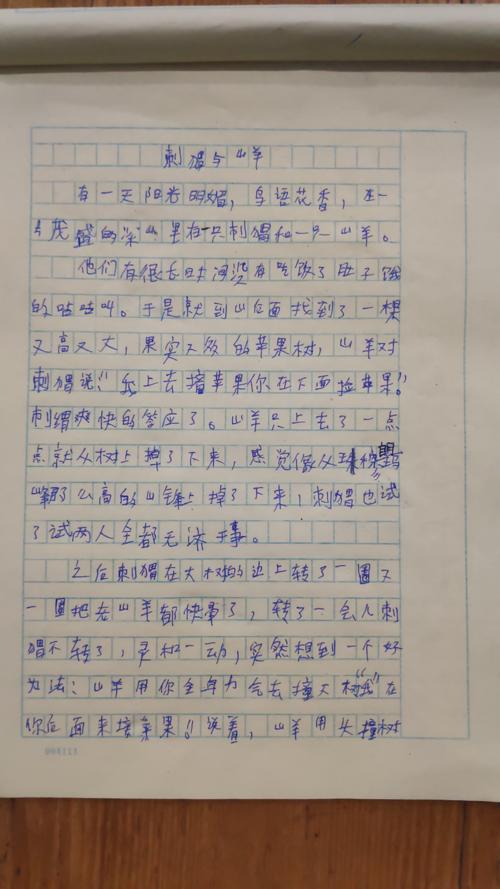 刺猬与山羊
有一天阳光明媚，鸟语花香，在一
茂盛的深山里有一只刺猬和一只山羊。
他们有很长时间没有吃饭了肚子饿
的咕咕叫。于是就到山后面找到了一棵
又高又大，果实又多的苹果树，山羊对
刺猬说：“我上去摘苹果你在下面捡苹果。”
刺猬爽快的答应了。山羊只上去了一点
点就从树上掉了下来，感觉像从珠穆朗玛
峰那么高的山锋上掉了下来，刺猬也试
了试两人全都无济于事。
之后刺猬在大树的边上转了一圈又
一圈把老山羊都快晕了，转了一会儿刺
猬不转了，灵机一动，突然想到一个好
办法：山羊用你全身力气去撞大树“我在
你后面来接苹果。”说着，山羊用头撞树